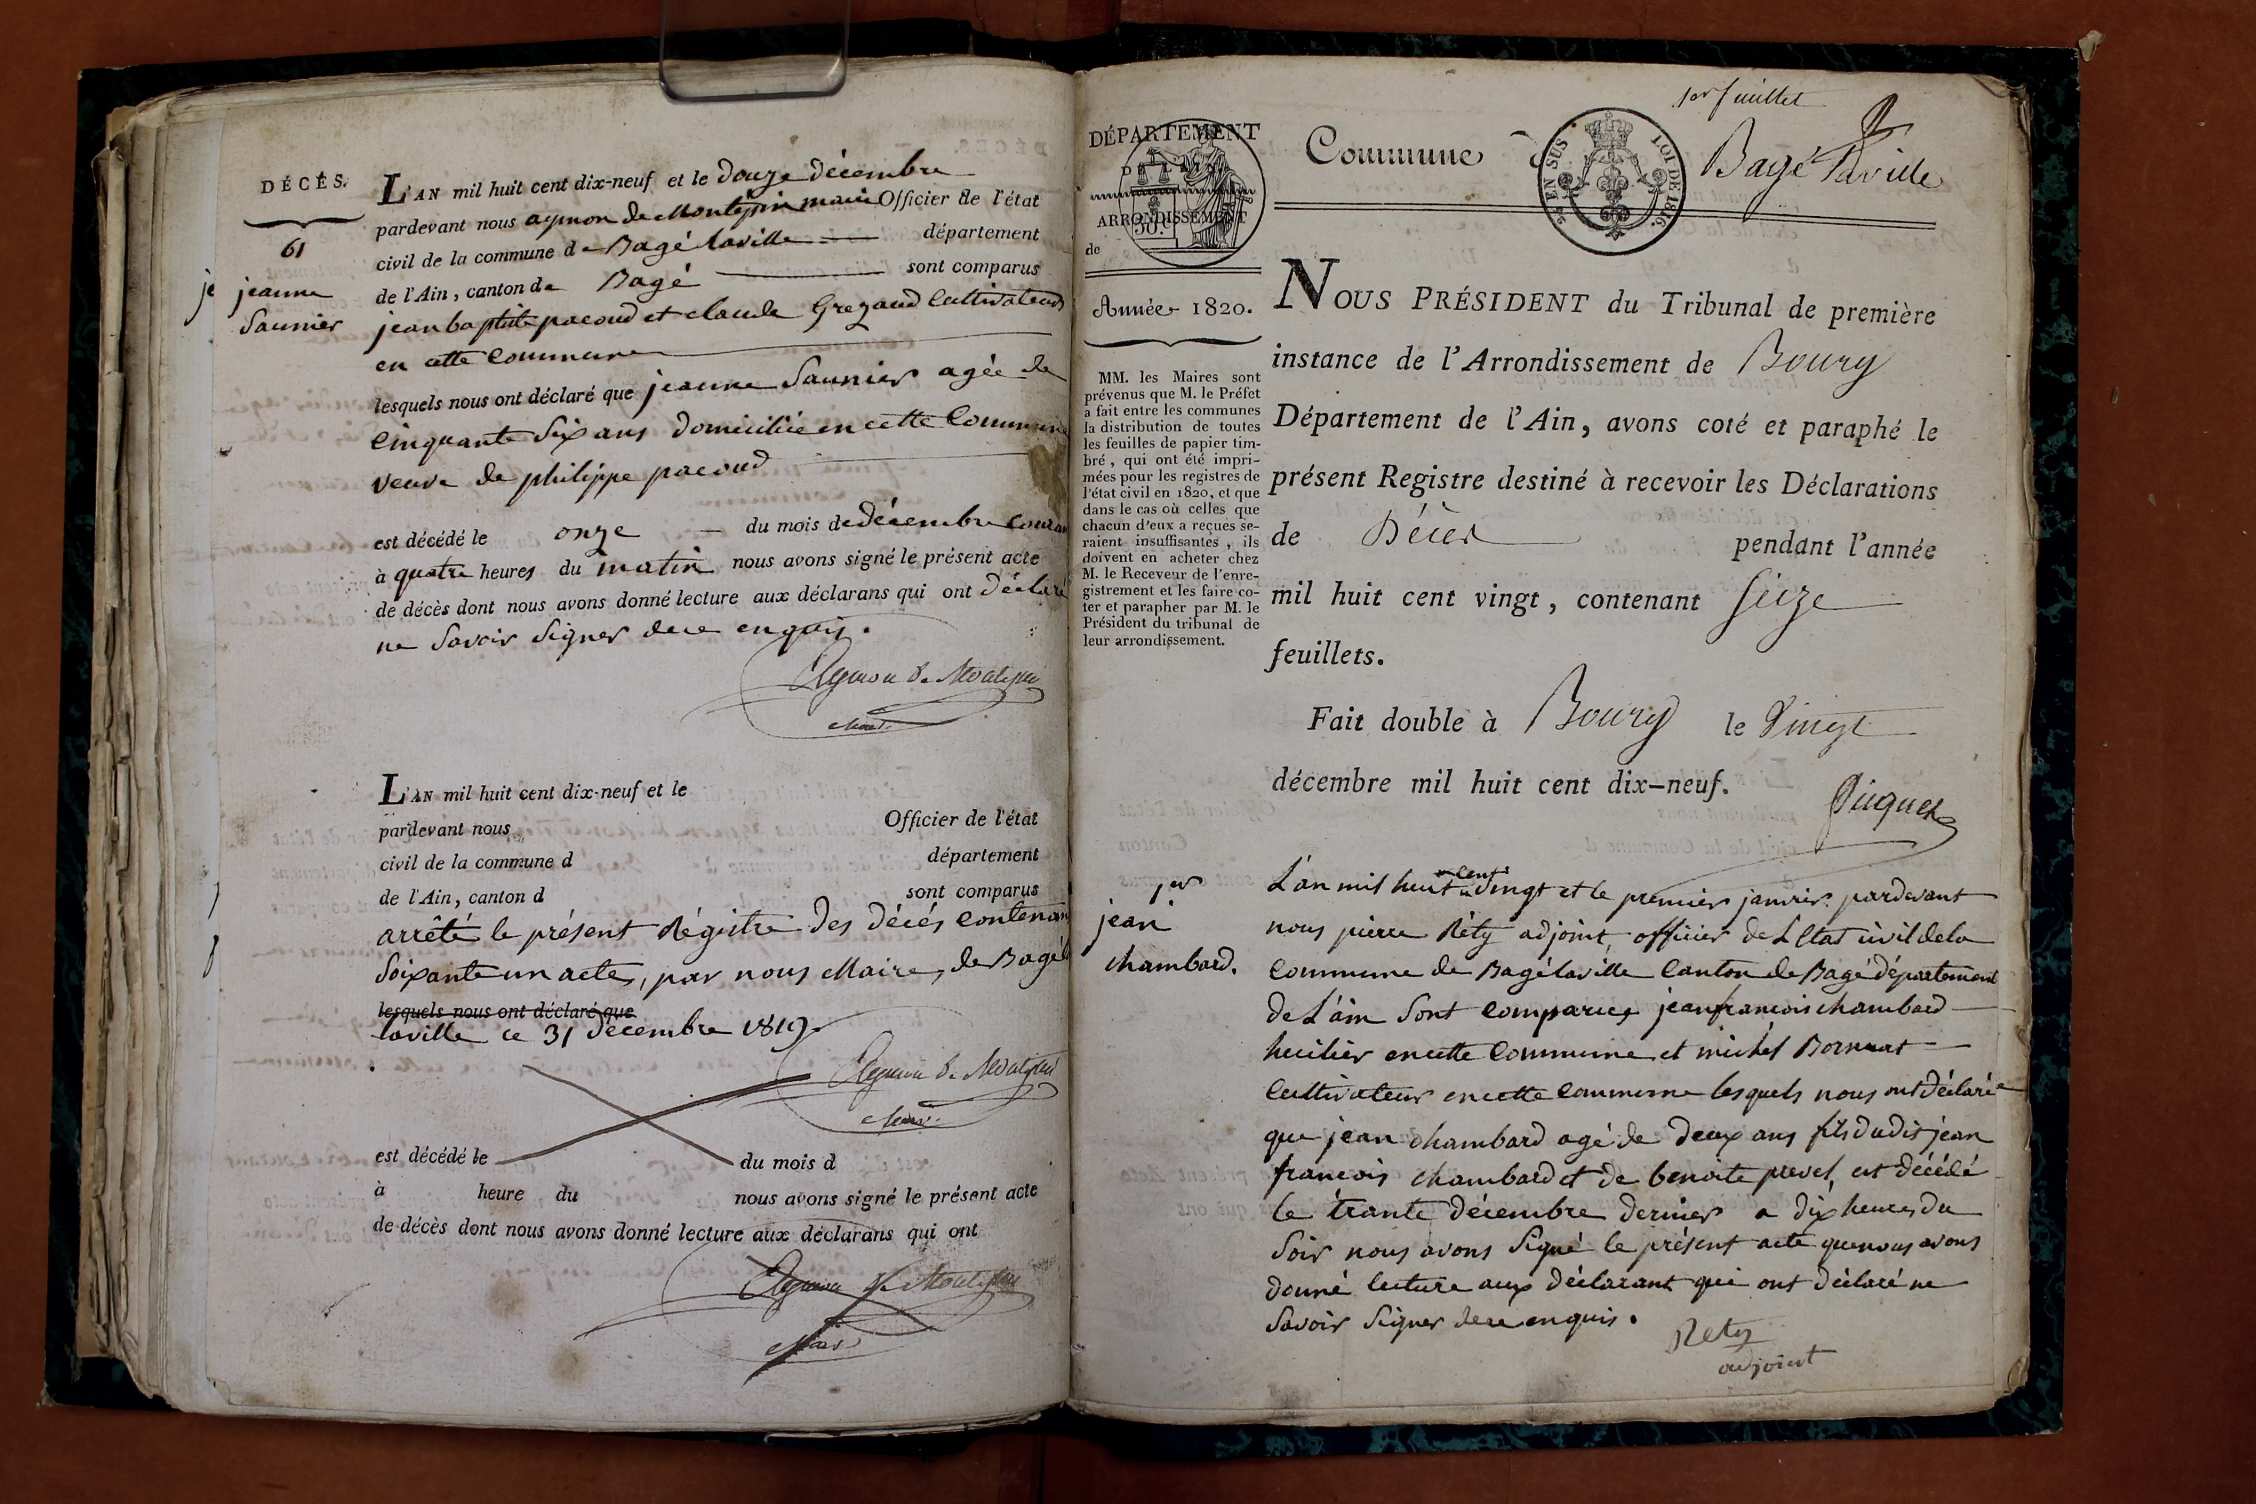 DÉCÈS.
61
jeanne
Saunier
je
L'AN mil huit cent dix-neuf et le douze décembre
pardevant nous aymon de Montépin maire Officier de l'état
civil de la commune de Bagé laville département
de l'Ain, canton de Bagé sont comparus
jean baptiste pacoud et claude Grezaud Cultivateurs
en cette Commune
lesquels nous ont déclaré que jeanne Saunier agée de
Cinquante Six ans domiciliée en cette Commune
veuve de philippe pacoud
est décédé le onze du mois de décembre Courant
à quatre heures du matin nous avons signé le présent acte
de décès dont nous avons donné lecture aux déclarans qui ont déclaré
ne Savoir Signer de ce enquis.
Aymon de Montépin
Maire
L'AN mil huit cent dix-neuf et le
pardevant nous Officier de l'état
civil de la commune d département
de l'Ain, canton d sont comparus
arrêté le présent Régistre des décés Contenant
Soixante un actes, par nous Maire, de Bagé la
lesquels nous ont déclaré que
laville ce 31 décembre 1819.
Aymon de Montépin
Maire
est décédé le du mois d
à heure du nous avons signé le présent acte
de décès dont nous avons donné lecture aux déclarans qui ont
Aymon de Montépin
Maire
1er feuillet
DÉPARTEMENT
DE L'AIN
ARRONDISSEMENT
50.c
de
Commune de Bagé Laville
EN SUS. LOI DE 1816.
Année 1820.
MM. les Maires sont
prévenus que M. le Préfet
a fait entre les communes
la distribution de toutes
les feuilles de papier tim-
bré, qui ont été impri-
mées pour les registres de
l'état civil en 1820, et que
dans le cas où celles que
chacun d'eux a reçues se-
raient insuffisantes, ils
doivent en acheter chez
M. le Receveur de l'enre-
gistrement et les faire co-
ter et parapher par M. le
Président du tribunal de
leur arrondissement.
NOUS PRÉSIDENT du Tribunal de première
instance de l'Arrondissement de Bourg
Département de l'Ain, avons coté et paraphé le
présent Registre destiné à recevoir les Déclarations
de Décès pendant l'année
mil huit cent vingt, contenant Seize
feuillets.
Fait double à Bourg le Vingt
décembre mil huit cent dix-neuf.
Piquet
1er
jean
chambard.
L'an mil huit cent vingt et le premier janvier pardevant
nous pierre Réty adjoint, officier de L'Etat civil de la
Commune de Bagé laville Canton de Bagé département
de L'ain Sont Comparus jean françois chambard
huilier en cette Commune et michel Bornuat
Cultivateur en cette Commune lesquels nous ont déclaré
que jean chambard agé de deux ans fils du dit jean
françois chambard et de benoite prevel, est décédé
le trante décembre dernier a dix heures du
Soir nous avons Signé le présent acte que nous avons
donné lecture aux déclarant qui ont déclaré ne
Savoir Signer de ce enquis.
Rety
adjoint